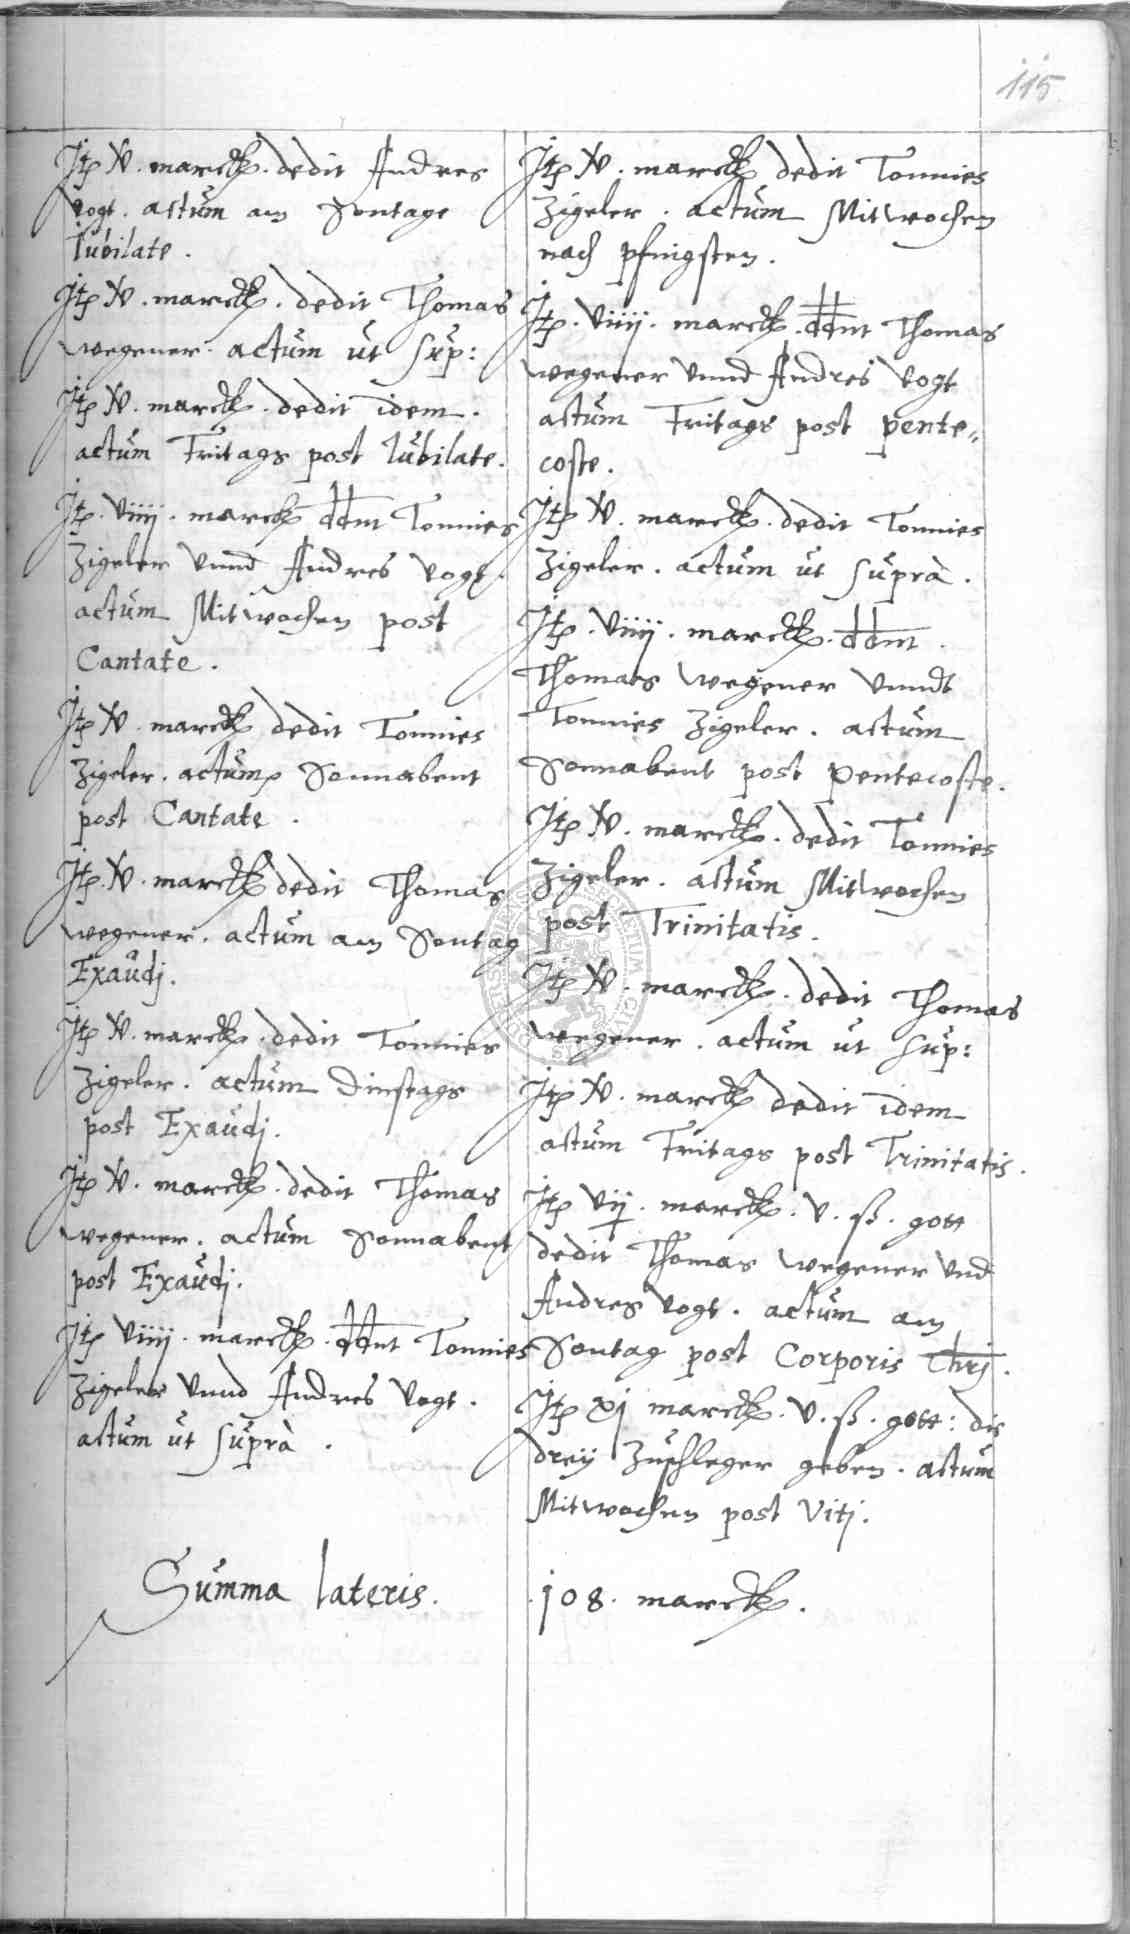 115
Itp V̵. marck. dedit Andres
Vogt. actum am Sontage
Iubilate.
Itp V̵. marck. dedit Thomas
Wegener. actum ut sup:
Itp V̵. marck. dedit idem.
actum Fritags post Iubilate.
Itp. viiij. marck ddnt Tonnies
Zigeler vnnd Andres Vogt.
actum Mitwochen post
Cantate.
Itp V̵. marck dedit Tonnies
Zigeler. actum Sonnabent
post Cantate.
Itp. V̵. marck dedit Thomas
Wegener. actum am Sontag
Exaudj.
Itp V̵. marck. dedit Tonnies
Zigeler. actum Dinstags
post Exaudj.
Itp V̵. marck. dedit Thomas
Wegener. actum Sonnabent
post Exaudj.
Itp viiij. marck. ddnt Tonnies
Zigeler vnnd Andres Vogt.
actum ut suprà.
Itp V̵. marck dedit Tonnies
Zigeler. actum Mitwochen
nach pfingsten.
Itp. viiij. marck. ddnt Thomas
Wegener vnnd Andres Vogt
actum Fritags post pente„
coste.
Itp V̵. marck. dedit Tonnies
Zigeler. actum ut suprà.
Itp. viiij. marck. ddnt.
Thomas Wegener vnndt
Tonnies Zigeler. actum
Sonnabent post Pentecoste.
Itp V̵. marck. dedit Tonnies
Zigeler. actum Mitwochen
post Trinitatis.
Itp V̵. marck. dedit Thomas
Wegener. actum ut sup:
Itp V̵. marck dedit idem
actum Fritags post Trinitatis.
Itp vij. marck. v. ß. gott
dedit Thomas Wegener vnd
Andres Vogt. actum am
Sontag post Corporis Chrj.
Itp xj marck. v. ß. gott: die
dreÿ Zuschleger geben. actum
Mitwochen post Vitj.
Summa lateris. 108. marck.